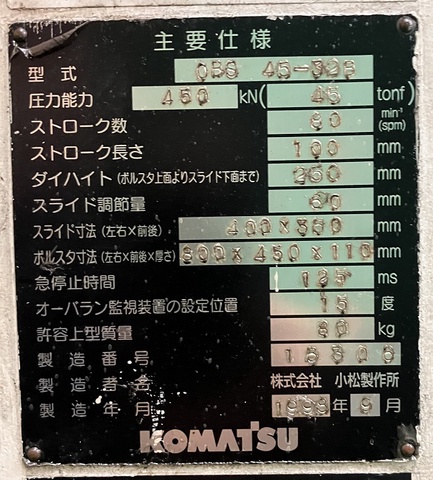 主要仕様
型式 OBS 45-3
圧力能力 450 kN( 45 tonf)
ストローク数 80 min⁻¹ (spm)
ストローク長さ 100 mm
ダイハイト(ボルスタ上面よりスライド下面まで) 250 mm
スライド調節量 60 mm
スライド寸法(左右×前後) 400×350 mm
ボルスタ寸法(左右×前後×厚さ) 800×450×110 mm
急停止時間 ms
オーバラン監視装置の設定位置 15 度
許容上型質量 80 kg
製造番号
製造者名 株式会社 小松製作所
製造年月 年 9 月
KOMATSU